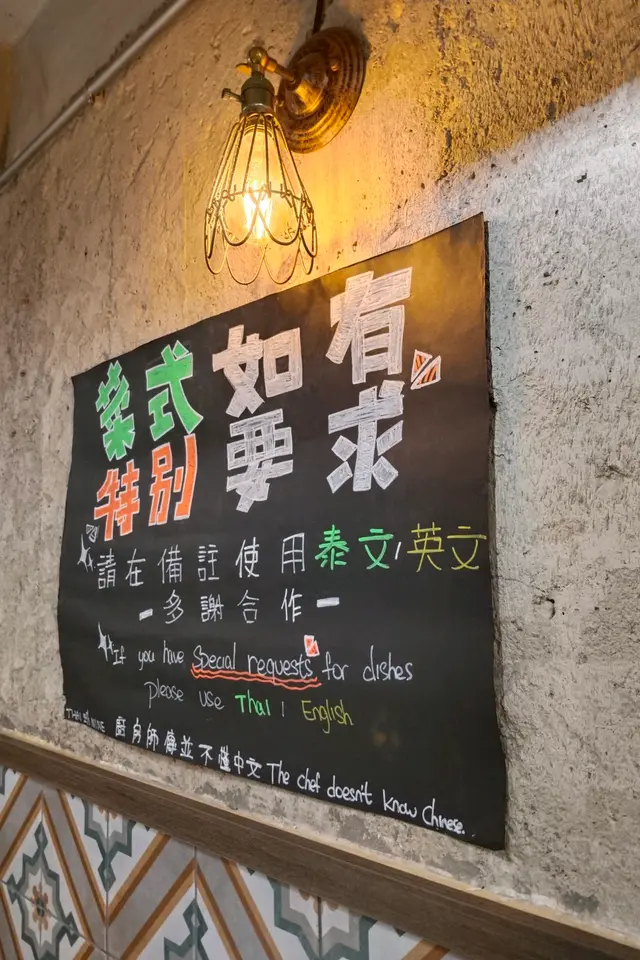 菜式如有
特別要求
請在備註使用泰文/英文
- 多謝合作 -
If you have Special requests for dishes
please use Thai / English
廚房師傅並不懂中文 The chef doesn't know Chinese.